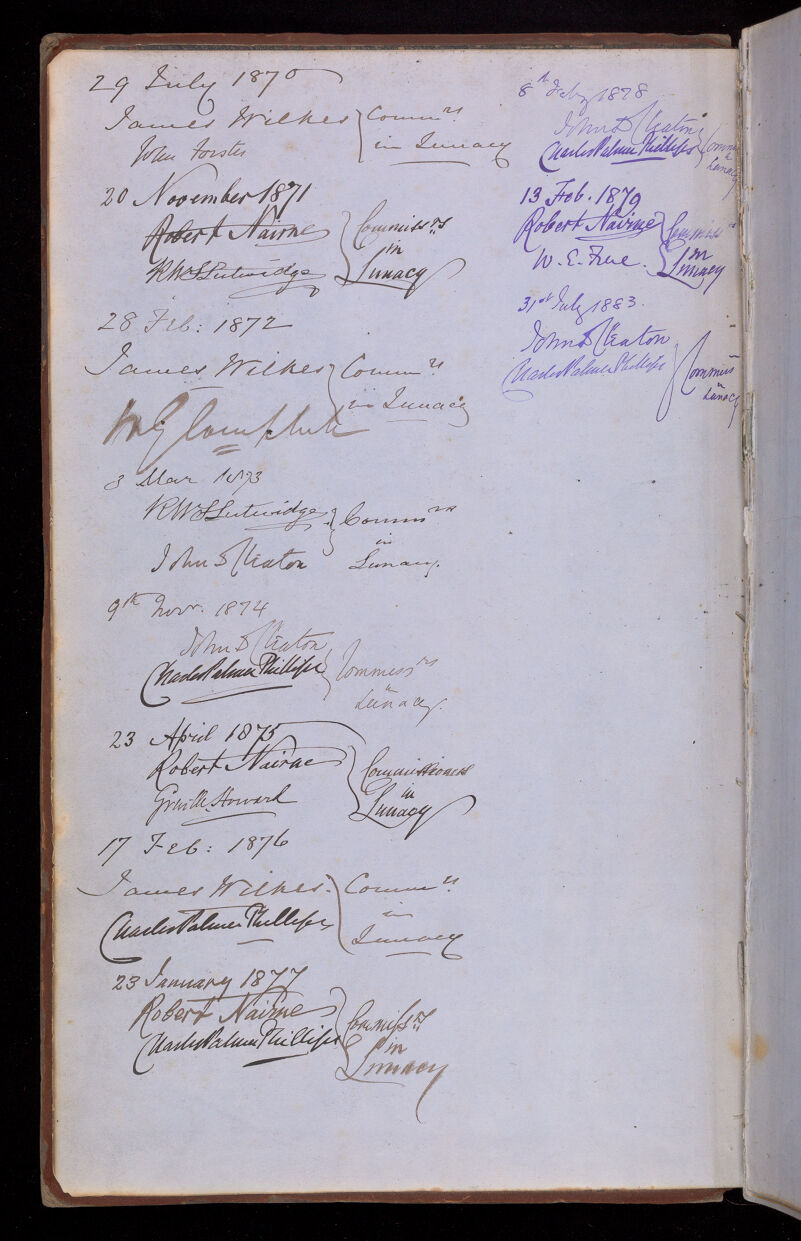 29 July 1870
James Wilkes Commrs
John Forster in Lunacy
20 November 1871
Robert Nairne Commissrs
in
R W S Lutwidge Lunacy
28 Feb: 1872
James Wilkes Commrs
in Lunacy
W G Campbell
3 Mar 1873
R W S Lutwidge Commrs
in
John D Cleaton Lunacy.
9th Novr. 1874
John D Cleaton
Charles Palmer Phillips Commissrs
in
Lunacy.
23 April 1875
Robert Nairne Commissioners
in
Greville Howard Lunacy
17 Feb: 1876
James Wilkes. Commrs
in
Charles Palmer Phillips Lunacy
23 January 1877
Robert Nairne Commissrs
Charles Palmer Phillips in
Lunacy
8th Feby 1878
John D Cleaton
Charles Palmer Phillips Commrs
in
Lunacy
13 Feb. 1879
Robert Nairne Commissrs
in
W. E. Frere. Lunacy
31st July 1883.
John D Cleaton
Charles Palmer Phillips Commrs
in
Lunacy